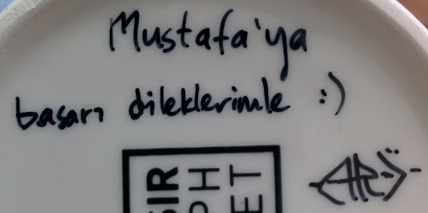 Mustafa'ya
basarı dileklerimle :)
SIR
PH
ET